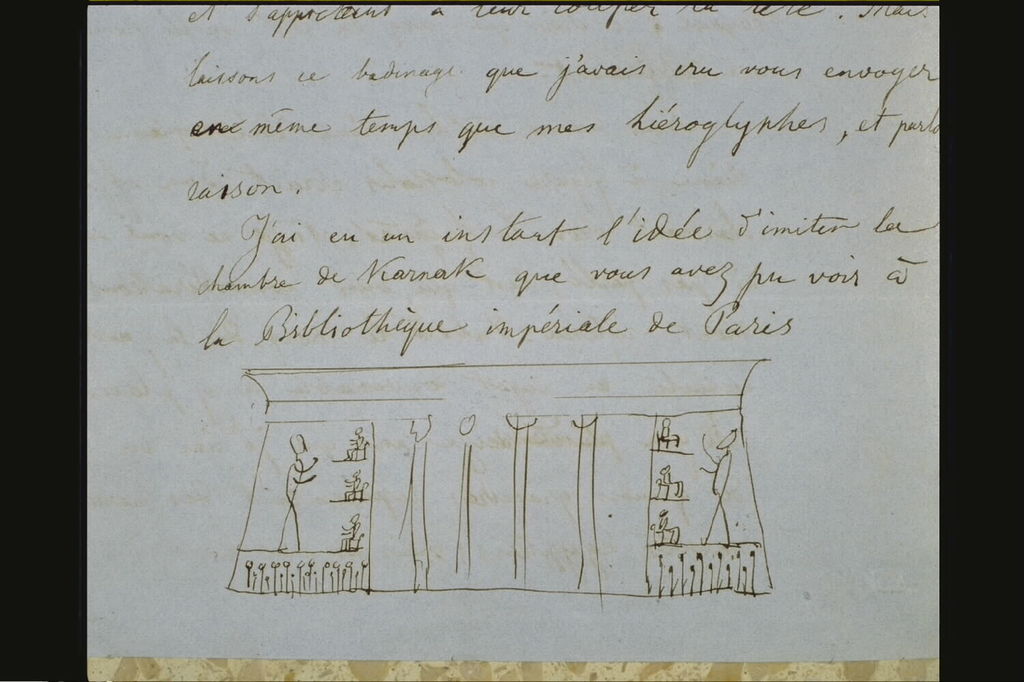 et s'apprêtant à leur couper la tête. Mais
laissons ce badinage que j'avais cru vous envoyer
en même temps que mes hiéroglyphes, et parlo
raison.
J'ai eu un instant l'idée d'imiter la
chambre de Karnak que vous avez pu voir à
la Bibliothèque impériale de Paris